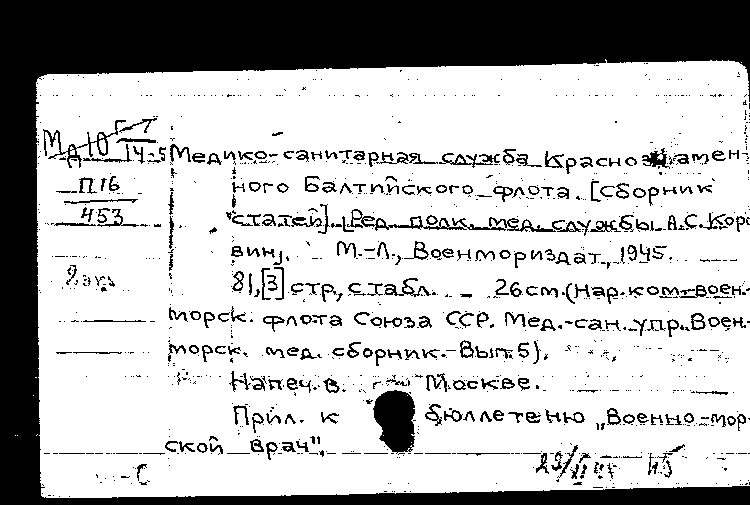 МД10 Г-7
14-5
Медико-санитарная служба Краснознамен-
П16
ного Балтийского флота. [Сборник
453
статей]. [Ред. полк. мед. службы А.С. Коро
вин]. М.-Л., Военмориздат, 1945.
2 экз
81,[3] стр, с табл. - 26см. (Нар. ком-воен.-
морск. флота Союза ССР. Мед.-сан. упр. Воен-
морск. мед. сборник.-Вып.5).
Напеч. в Москве.
Прил. к бюллетеню „Военно-мор-
ской врач".
-С
45